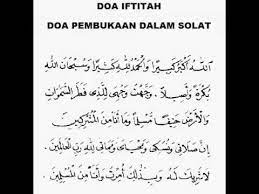 DOA IFTITAH
DOA PEMBUKAAN DALAM SOLAT
اَللّٰهُ اَكْبَرُ كَبِيْرًا وَالْحَمْدُ لِلّٰهِ كَثِيْرًا وَسُبْحَانَ اللّٰهِ
بُكْرَةً وَاَصِيْلًا . وَجَّهْتُ وَجْهِيَ لِلَّذِيْ فَطَرَ السَّمٰوَاتِ
وَالْاَرْضَ حَنِيْفًا مُسْلِمًا وَمَا اَنَا مِنَ الْمُشْرِكِيْنَ
اِنَّ صَلَاتِيْ وَنُسُكِيْ وَمَحْيَايَ وَمَمَاتِيْ لِلّٰهِ رَبِّ الْعَالَمِيْنَ .
لَا شَرِيْكَ لَهُ وَبِذٰلِكَ اُمِرْتُ وَاَنَا مِنَ الْمُسْلِمِيْنَ .